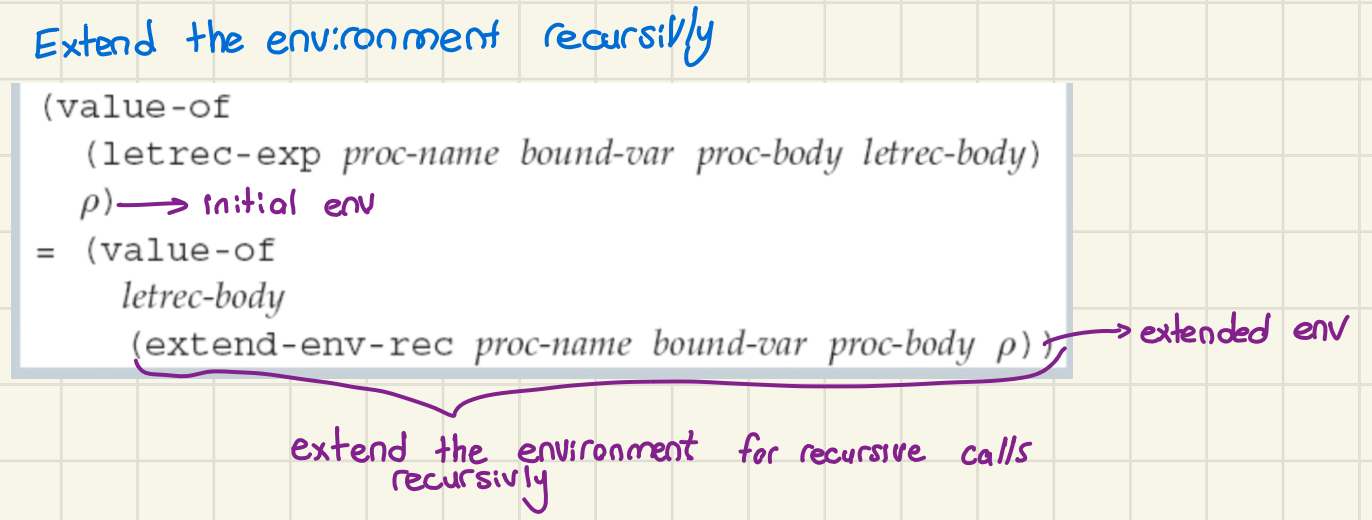 Extend the environment recursivly
(value-of
(letrec-exp proc-name bound-var proc-body letrec-body)
ρ) initial env
= (value-of
letrec-body
(extend-env-rec proc-name bound-var proc-body ρ)) extended env
extend the environment for recursive calls
recursivly